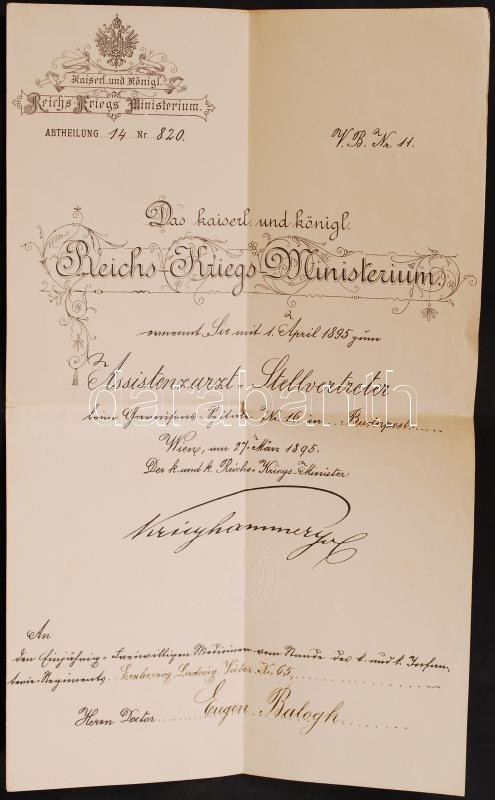 Kaiserl. und Königl.
Reichs Kriegs Ministerium.
ABTHEILUNG 14 Nr. 820.
V. B. Nr. 11.
Das kaiserl. und königl.
Reichs-Kriegs-Ministerium
ernennt Sie mit 1. April 1895 zum
Assistenzarzt-Stellvertreter
beim Garnisons-Spitale Nr. 16 in Budapest
darabanth
Wien, am 27. März 1895.
Der k. und k. Reichs-Kriegs-Minister:
Krieghammer
An
den Einjährig-Freiwilligen Mediciner vom Stande des k. und k. Infan-
terie-Regiments Erzherzog Ludwig Victor Nr. 65,
Herrn Doctor Eugen Balogh